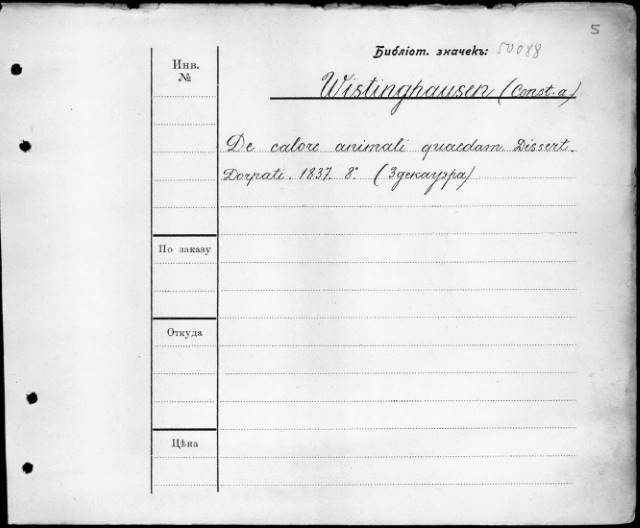 5
Библіот. значекъ: 50088
Инв.
№
Wistinghausen (Const. a)
De calore animali quaedam. Dissert.
Dorpati. 1837. 8°. (Здекауэра)
По заказу
Откуда
Цѣна